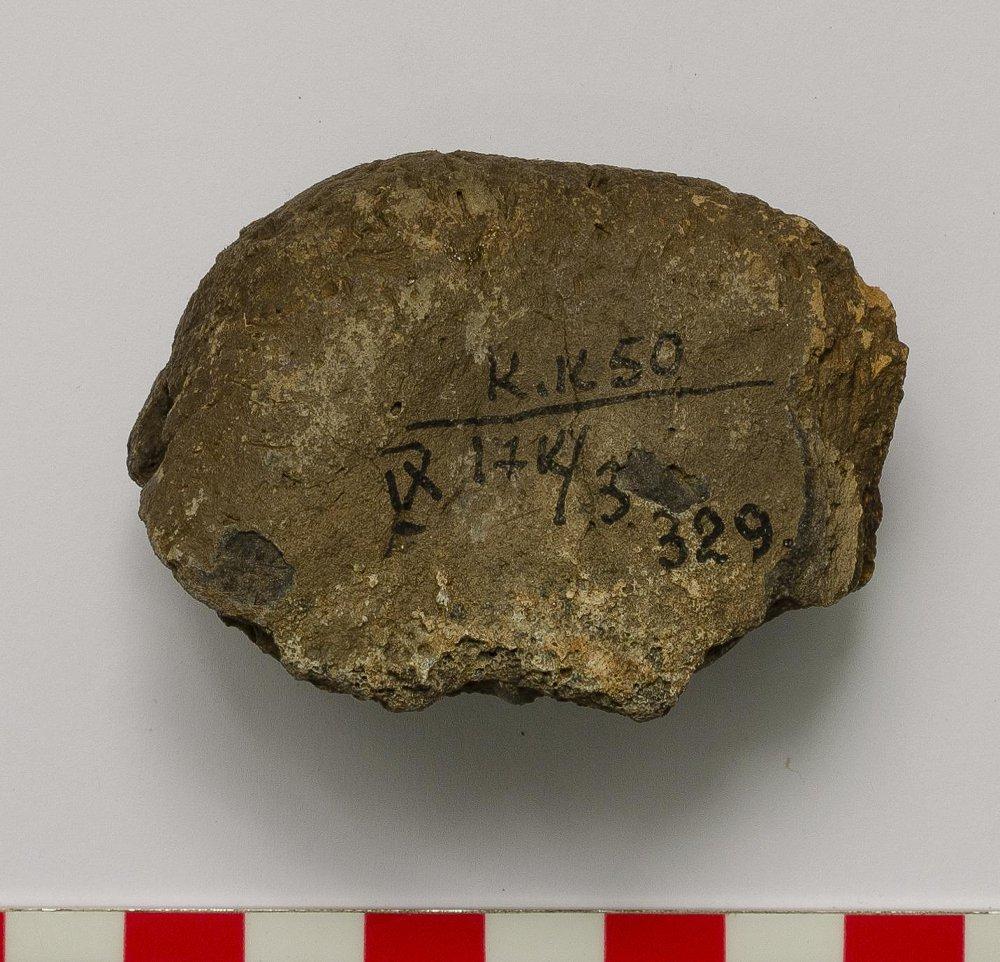 K.K50
IX 17K/3
329.